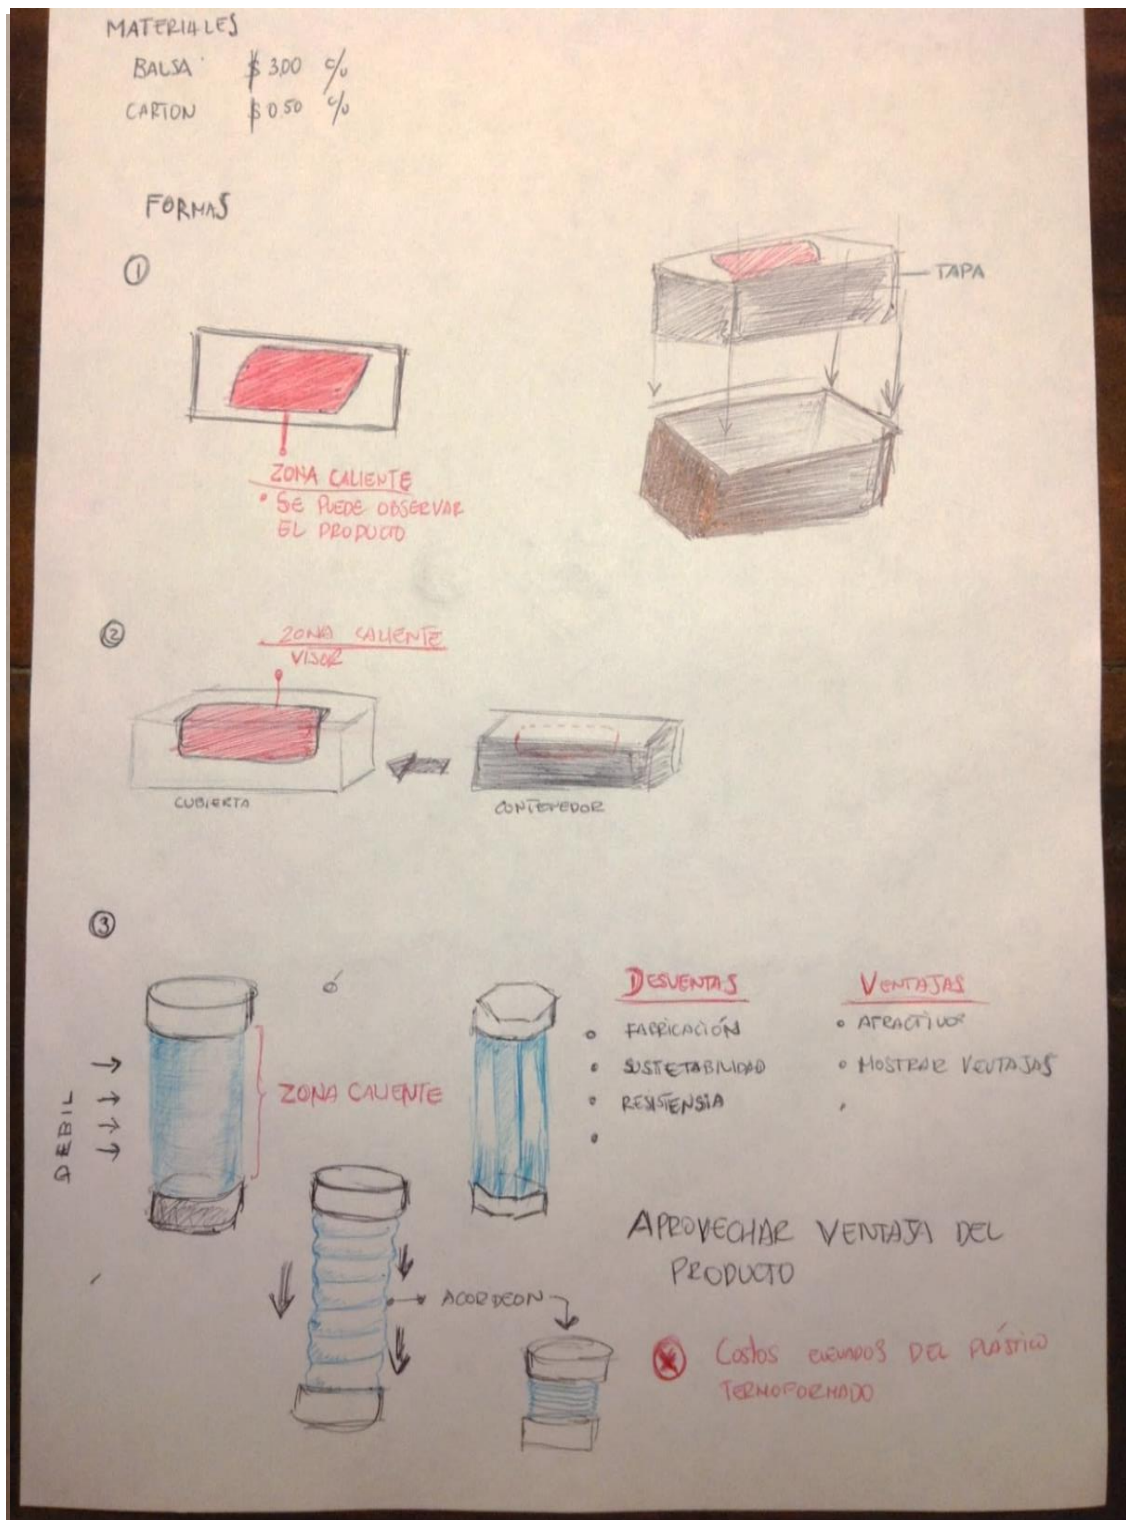 MATERIALES
BALSA $ 3,00 c/u
CARTON $ 0.50 c/u
FORMAS
①
TAPA
ZONA CALIENTE
• SE PUEDE OBSERVAR
EL PRODUCTO
②
ZONA CALIENTE
VISOR
CUBIERTA
CONTENEDOR
③
ó
DESVENTAS
• FABRICACIÓN
• SUSTETABILIDAD
• RESISTENSIA
•
VENTAJAS
• ATRACTIVO
• MOSTRAR VENTAJAS
DEBIL
ZONA CALIENTE
ACORDEON
APROVECHAR VENTAJA DEL
PRODUCTO
Costos ELEVADOS DEL PLÁSTICO
TERMOFORMADO